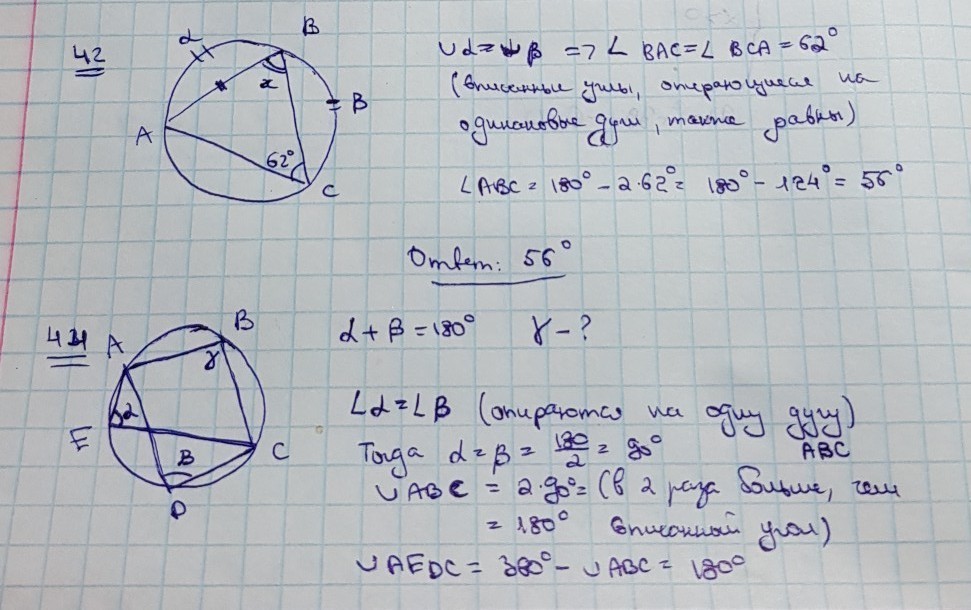 42
α
B
x
B
A
62°
C
∪α = ∪β => ∠ BAC = ∠ BCA = 62°
(вписанные углы, опирающиеся на
одинаковые дуги, также равны)
∠ABC = 180° - 2·62° = 180° - 124° = 56°
Ответ: 56°
A
B
γ
α
E
β
C
D
α + β = 180° γ - ?
∠α = ∠β (опираются на одну дугу)
ABC
Тогда α = β = 180/2 = 90°
∪ABC = 2·90° = (в 2 раза больше, чем
= 180° вписанный угол)
∪AEDC = 360° - ∪ABC = 180°